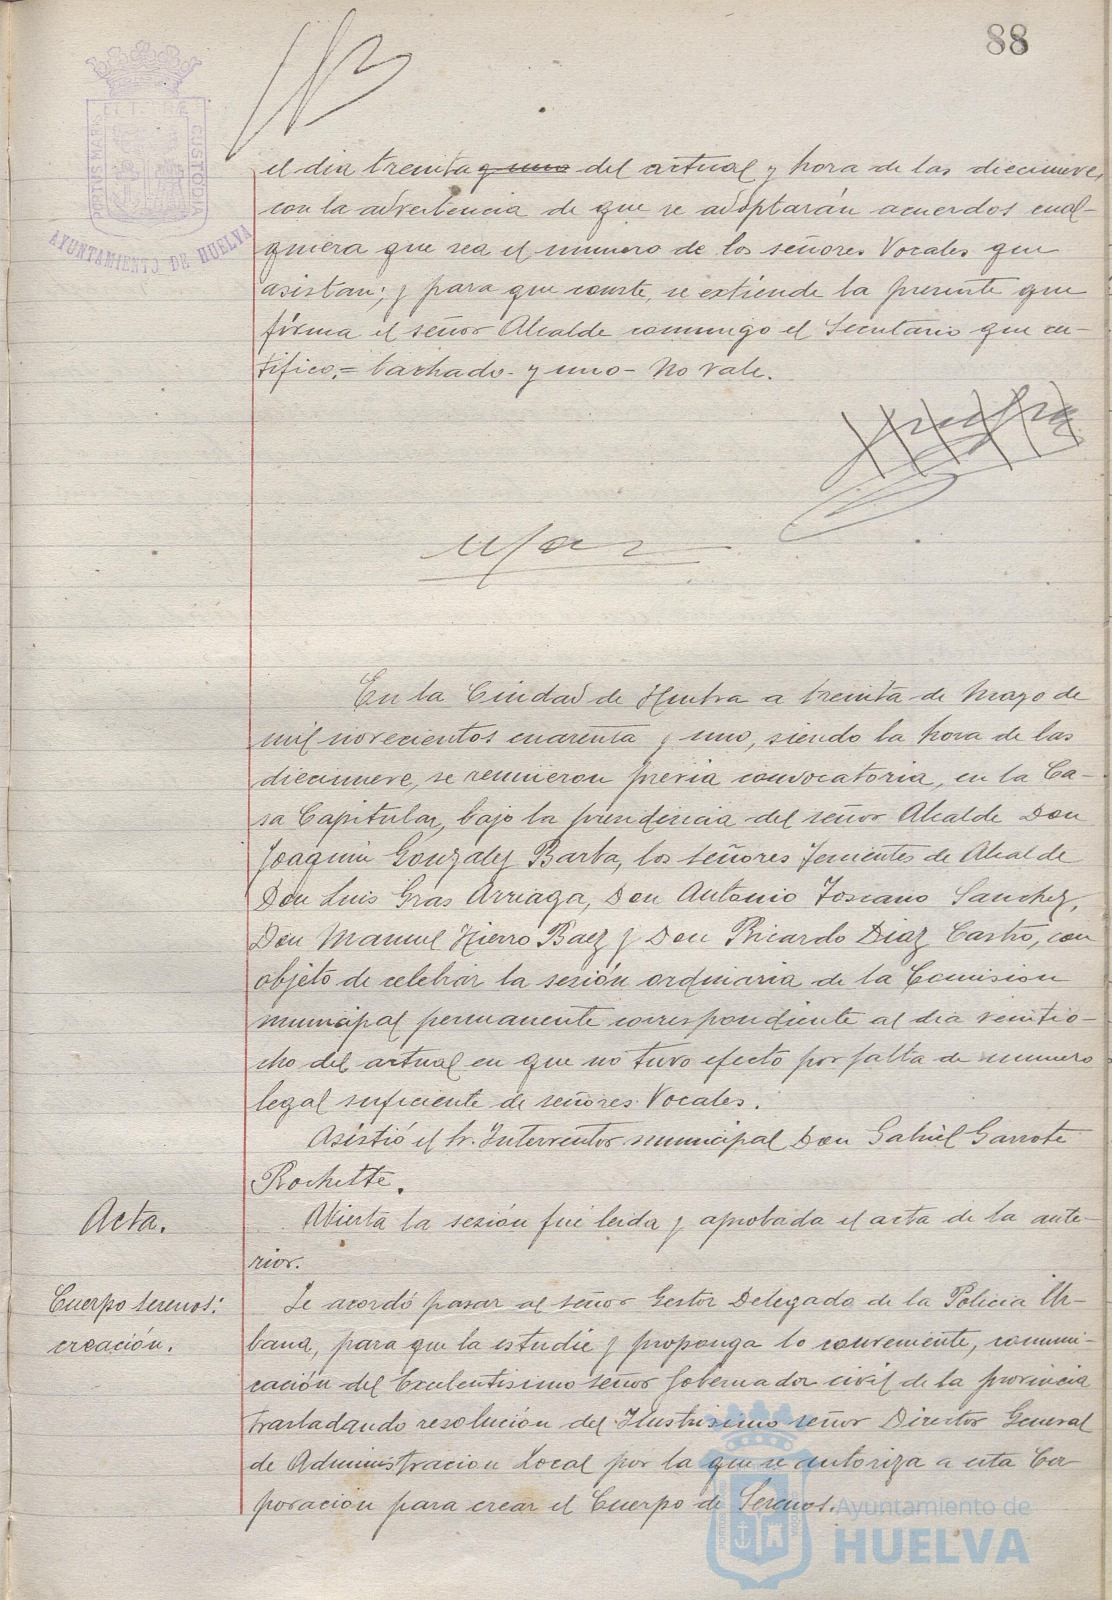 88
PORTUS MARIS ET TERRÆ CUSTODIA
AYUNTAMIENTO DE HUELVA
el dia treinta y uno del actual y hora de las diecinueve,
con la advertencia de que se adoptarán acuerdos cual-
quiera que sea el numero de los señores Vocales que
asistan; y para que conste, se extiende la presente que
firma el señor Alcalde conmigo el Secretario que cer-
tifico.= tachado- y uno- No vale.
En la Ciudad de Huelva a treinta de Mayo de
mil novecientos cuarenta y uno, siendo la hora de las
diecinueve, se reunieron previa convocatoria, en la Ca-
sa Capitular, bajo la presidencia del señor Alcalde Don
Joaquin Gonzalez Barba, los señores Tenientes de Alcalde
Don Luis Gras Arriaga, Don Antonio Toscano Sanchez,
Don Manuel Hierro Baez y Don Ricardo Diaz Castro, con
objeto de celebrar la sesión ordinaria de la Comision
municipal permanente correspondiente al dia veintio-
cho del actual en que no tuvo efecto por falta de numero
legal suficiente de señores Vocales.
Asistió el Sr. Interventor municipal Don Gabriel Garrote
Rochette.
Acta.
Abierta la sesión fué leida y aprobada el acta de la ante-
rior.
Cuerpo serenos:
creación.
Se acordó pasar al señor Gestor Delegado de la Policia Ur-
bana, para que la estudie y proponga lo conveniente, comuni-
cación del Excelentisimo señor Gobernador civil de la provincia
trasladando resolución del Ilustrisimo señor Director General
de Administracion Local por la que se autoriza a esta Cor-
poración para crear el Cuerpo de Serenos.
Ayuntamiento de
HUELVA